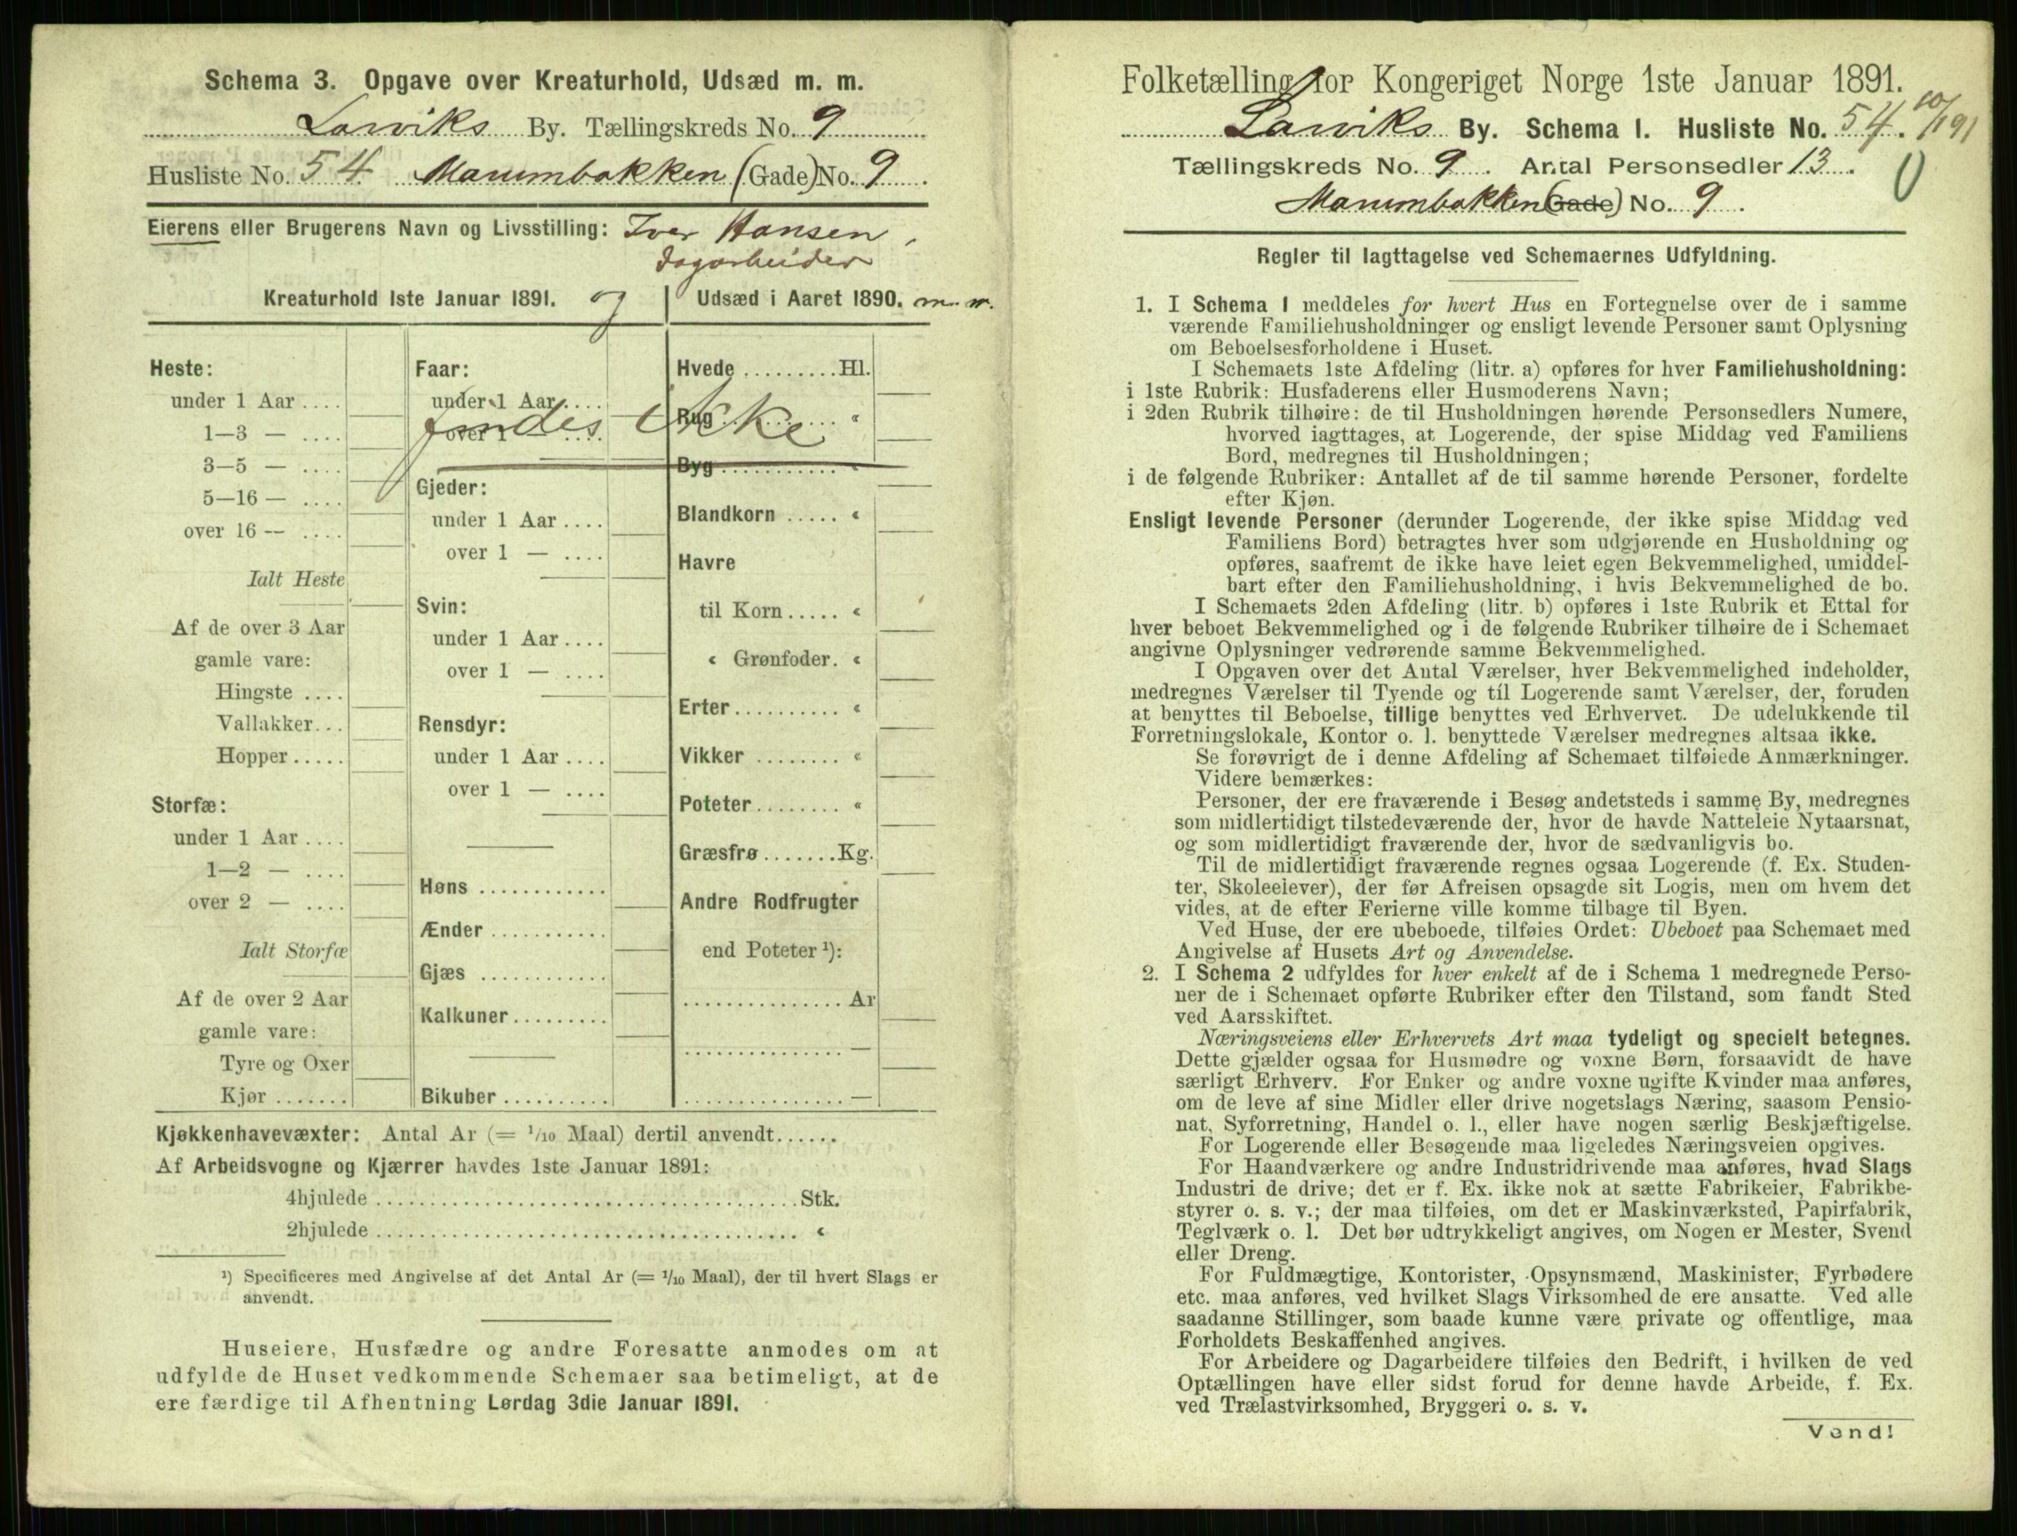 Schema 3. Opgave over Kreaturhold, Udsæd m. m.
Larviks By. Tællingskreds No. 9
Husliste No. 54 Manumbakken (Gade) No. 9
Eierens eller Brugerens Navn og Livsstilling: Iver Hansen,
Dagarbeider
Kreaturhold 1ste Januar 1891. og
Udsæd i Aaret 1890. m. m.
Heste:
under 1 Aar ....
1—3 — ....
3—5 — ....
5—16 — ....
over 16 — ....
Ialt Heste
Af de over 3 Aar
gamle vare:
Hingste ....
Vallakker...
Hopper.....
Storfæ:
under 1 Aar ....
1—2 — ....
over 2 — ....
Ialt Storfæ
Af de over 2 Aar
gamle vare:
Tyre og Oxer
Kjør .......
Faar:
under 1 Aar ....
over 1 — ....
findes ikke
Gjeder:
under 1 Aar ....
over 1 — ....
Svin:
under 1 Aar ....
over 1 — ....
Rensdyr:
under 1 Aar ....
over 1 — ....
Høns ............
Ænder ...........
Gjæs ............
Kalkuner.........
Bikuber ..........
Hvede .........Hl.
Rug ............ «
Byg ............ «
Blandkorn ..... «
Havre
til Korn ..... «
« Grønfoder. «
Erter.......... «
Vikker ........ «
Poteter........ «
Græsfrø .......Kg.
Andre Rodfrugter
end Poteter ¹):
...............Ar
............... —
............... —
Kjøkkenhavevæxter: Antal Ar (= 1/10 Maal) dertil anvendt......
Af Arbeidsvogne og Kjærrer havdes 1ste Januar 1891:
4hjulede ....................................... Stk.
2hjulede ....................................... «
¹) Specificeres med Angivelse af det Antal Ar (= 1/10 Maal), der til hvert Slags er
anvendt.
Huseiere, Husfædre og andre Foresatte anmodes om at
udfylde de Huset vedkommende Schemaer saa betimeligt, at de
ere færdige til Afhentning Lørdag 3die Januar 1891.
Folketælling for Kongeriget Norge 1ste Januar 1891.
Larviks By. Schema 1. Husliste No. 54. 10/1 91
Tællingskreds No. 9. Antal Personsedler 13.
Manumbakken (Gade) No. 9.
Regler til Iagttagelse ved Schemaernes Udfyldning.
1. I Schema 1 meddeles for hvert Hus en Fortegnelse over de i samme
værende Familiehusholdninger og ensligt levende Personer samt Oplysning
om Beboelsesforholdene i Huset.
I Schemaets 1ste Afdeling (litr. a) opføres for hver Familiehusholdning:
i 1ste Rubrik: Husfaderens eller Husmoderens Navn;
i 2den Rubrik tilhøire: de til Husholdningen hørende Personsedlers Numere,
hvorved iagttages, at Logerende, der spise Middag ved Familiens
Bord, medregnes til Husholdningen;
i de følgende Rubriker: Antallet af de til samme hørende Personer, fordelte
efter Kjøn.
Ensligt levende Personer (derunder Logerende, der ikke spise Middag ved
Familiens Bord) betragtes hver som udgjørende en Husholdning og
opføres, saafremt de ikke have leiet egen Bekvemmelighed, umiddel-
bart efter den Familiehusholdning, i hvis Bekvemmelighed de bo.
I Schemaets 2den Afdeling (litr. b) opføres i 1ste Rubrik et Ettal for
hver beboet Bekvemmelighed og i de følgende Rubriker tilhøire de i Schemaet
angivne Oplysninger vedrørende samme Bekvemmelighed.
I Opgaven over det Antal Værelser, hver Bekvemmelighed indeholder,
medregnes Værelser til Tyende og til Logerende samt Værelser, der, foruden
at benyttes til Beboelse, tillige benyttes ved Erhvervet. De udelukkende til
Forretningslokale, Kontor o. l. benyttede Værelser medregnes altsaa ikke.
Se forøvrigt de i denne Afdeling af Schemaet tilføiede Anmærkninger.
Videre bemærkes:
Personer, der ere fraværende i Besøg andetsteds i samme By, medregnes
som midlertidigt tilstedeværende der, hvor de havde Natteleie Nytaarsnat,
og som midlertidigt fraværende der, hvor de sædvanligvis bo.
Til de midlertidigt fraværende regnes ogsaa Logerende (f. Ex. Studen-
ter, Skoleelever), der før Afreisen opsagde sit Logis, men om hvem det
vides, at de efter Ferierne ville komme tilbage til Byen.
Ved Huse, der ere ubeboede, tilføies Ordet: Ubeboet paa Schemaet med
Angivelse af Husets Art og Anvendelse.
2. I Schema 2 udfyldes for hver enkelt af de i Schema 1 medregnede Perso-
ner de i Schemaet opførte Rubriker efter den Tilstand, som fandt Sted
ved Aarsskiftet.
Næringsveiens eller Erhvervets Art maa tydeligt og specielt betegnes.
Dette gjælder ogsaa for Husmødre og voxne Børn, forsaavidt de have
særligt Erhverv. For Enker og andre voxne ugifte Kvinder maa anføres,
om de leve af sine Midler eller drive nogetslags Næring, saasom Pensio-
nat, Syforretning, Handel o. l., eller have nogen særlig Beskjæftigelse.
For Logerende eller Besøgende maa ligeledes Næringsveien opgives.
For Haandværkere og andre Industridrivende maa anføres, hvad Slags
Industri de drive; det er f. Ex. ikke nok at sætte Fabrikeier, Fabrikbe-
styrer o. s. v.; der maa tilføies, om det er Maskinværksted, Papirfabrik,
Teglværk o. l. Det bør udtrykkeligt angives, om Nogen er Mester, Svend
eller Dreng.
For Fuldmægtige, Kontorister, Opsynsmænd, Maskinister, Fyrbødere
etc. maa anføres, ved hvilket Slags Virksomhed de ere ansatte. Ved alle
saadanne Stillinger, som baade kunne være private og offentlige, maa
Forholdets Beskaffenhed angives.
For Arbeidere og Dagarbeidere tilføies den Bedrift, i hvilken de ved
Optællingen have eller sidst forud for denne havde Arbeide, f. Ex.
ved Trælastvirksomhed, Bryggeri o. s. v.
Vend!